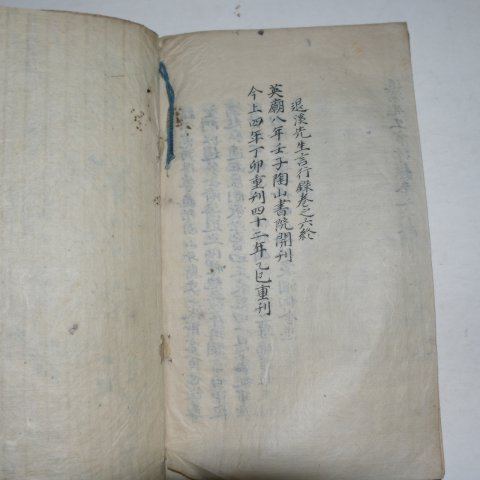 退溪先生言行錄卷之六終
英廟八年壬子陶山書院開刊
今上四年丁卯重刊四十二年乙巳重刊